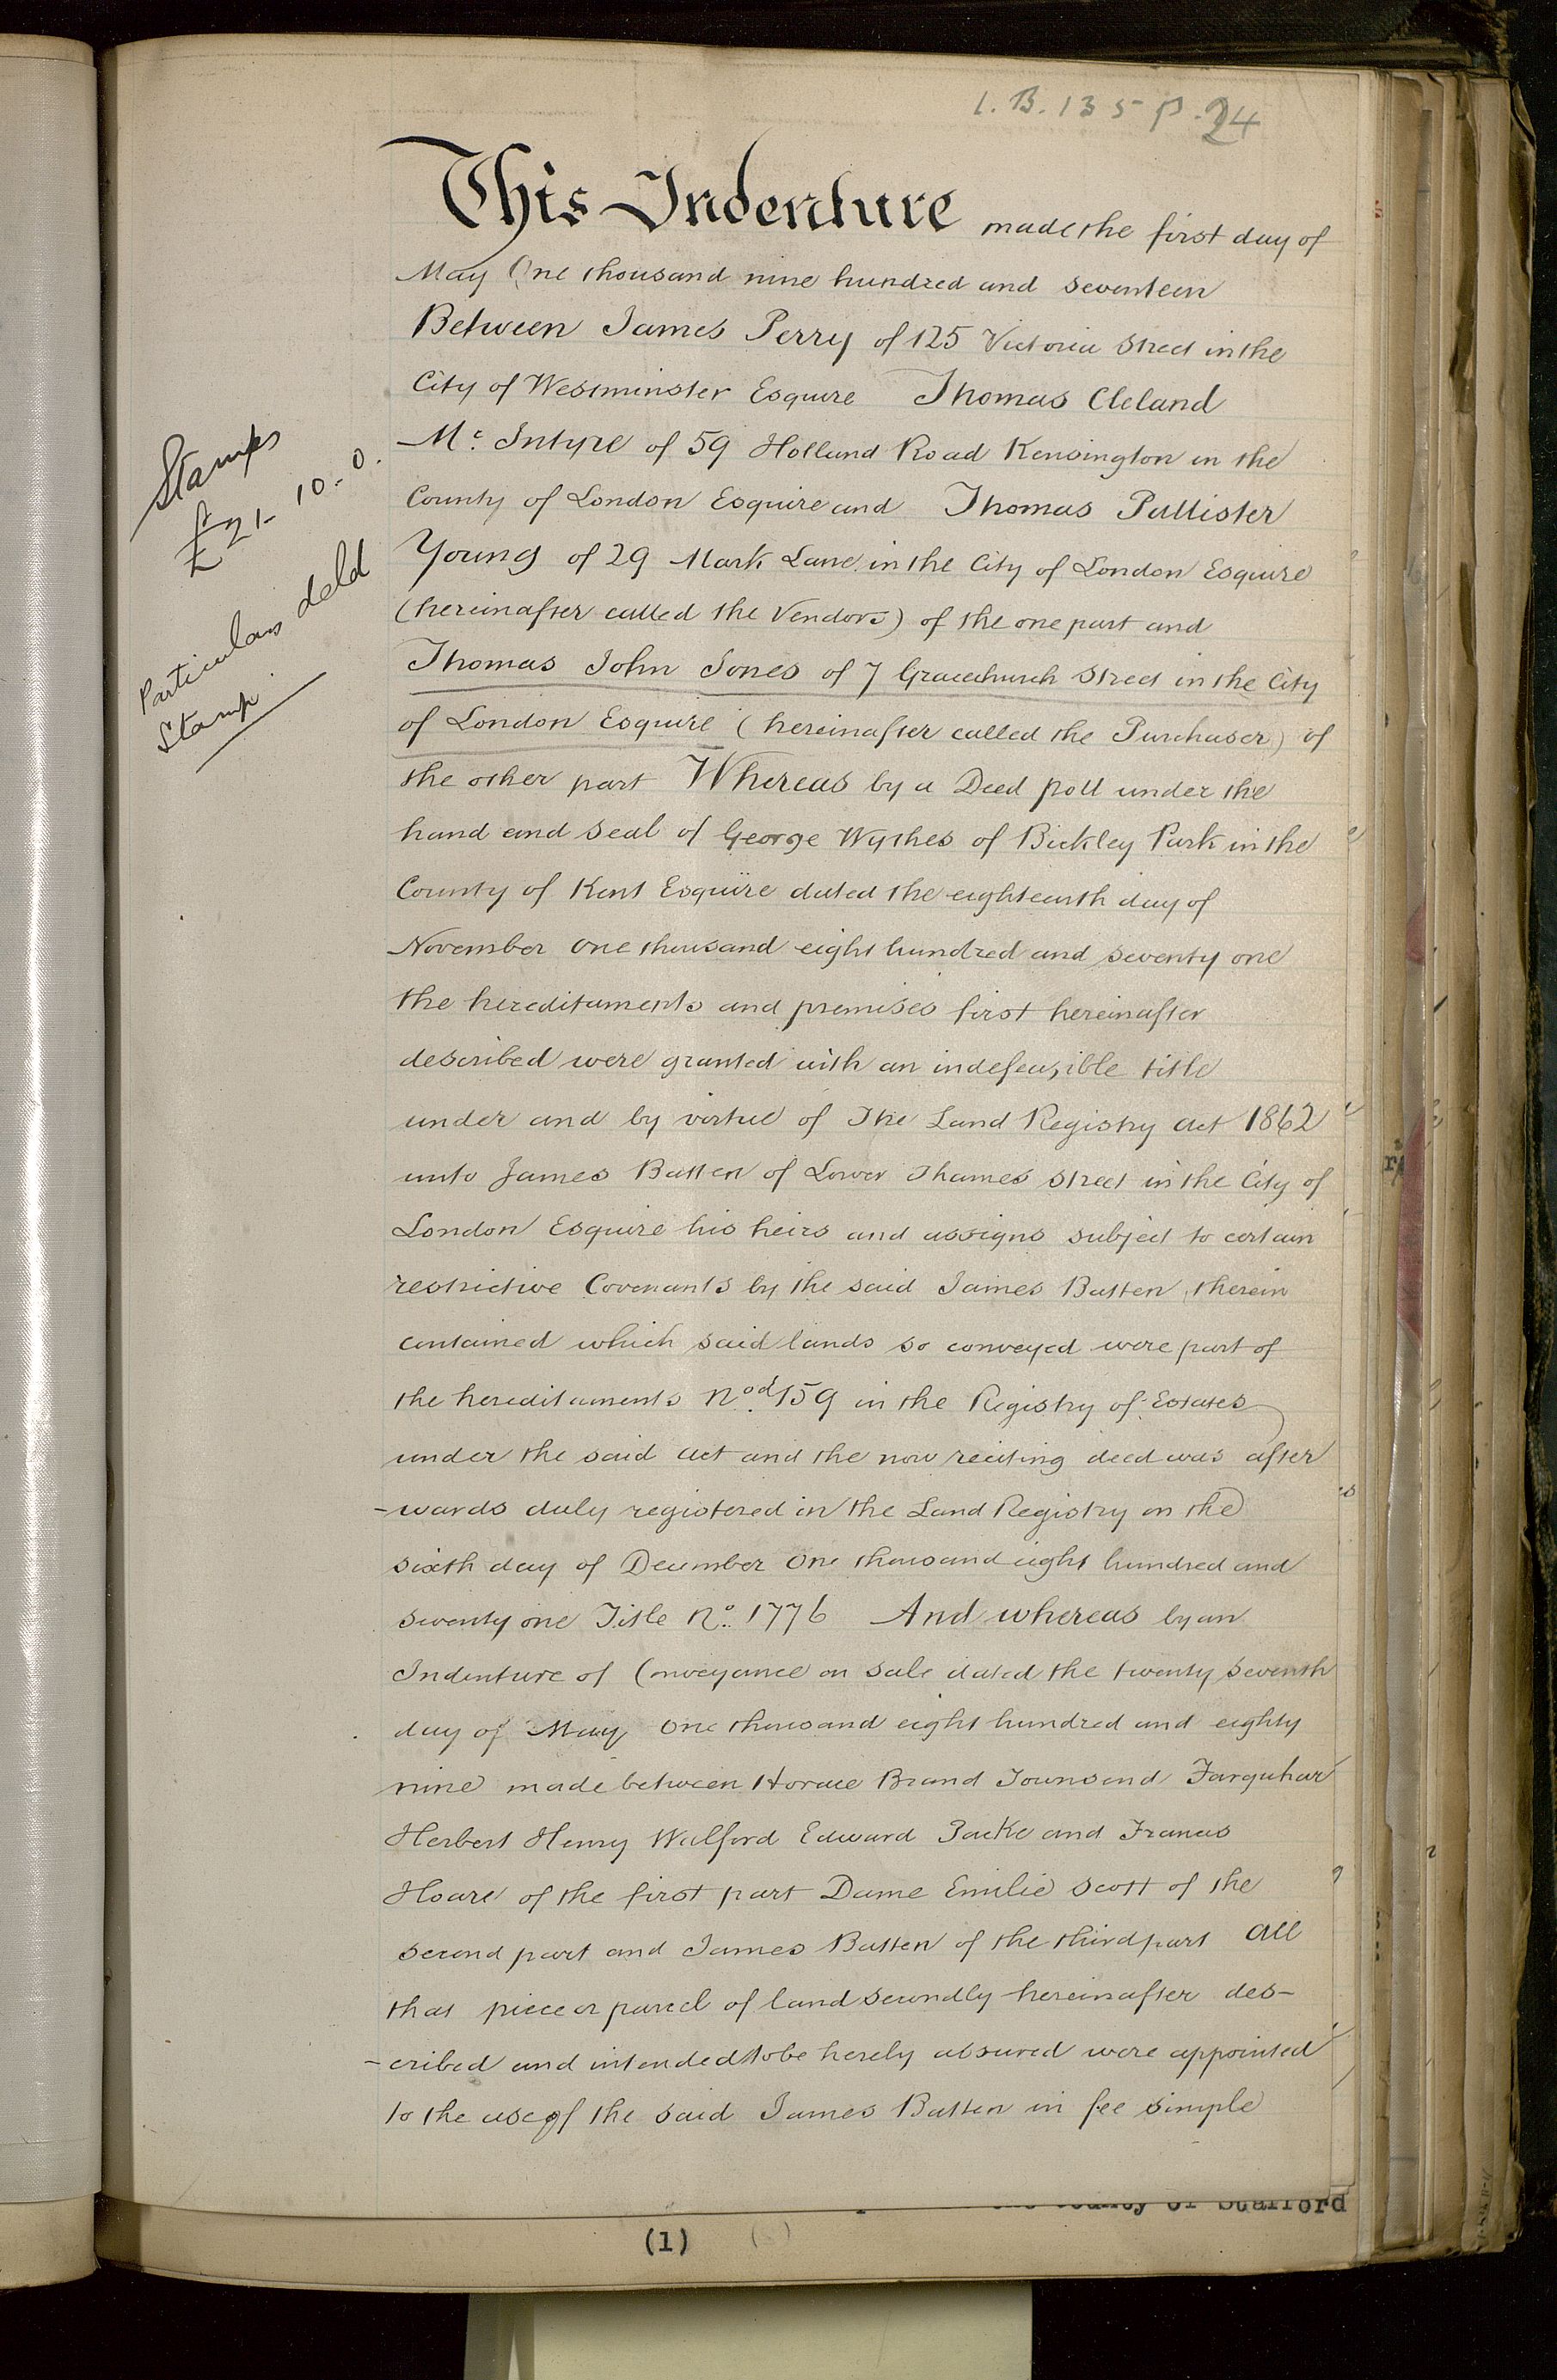 1. B. 135 p. 24
This Indenture made the first day of
May One thousand nine hundred and seventeen
Between James Perry of 125 Victoria Street in the
City of Westminster Esquire Thomas Cleland
Mc. Intyre of 59 Holland Road Kensington in the
County of London Esquire and Thomas Pallister
Young of 29 Mark Lane in the City of London Esquire
(hereinafter called the Vendors) of the one part and
Thomas John Jones of 7 Gracechurch Street in the City
of London Esquire (hereinafter called the Purchaser) of
the other part Whereas by a Deed poll under the
hand and seal of George Wythes of Bickley Park in the
County of Kent Esquire dated the eighteenth day of
November one thousand eight hundred and seventy one
the hereditaments and premises first hereinafter
described were granted with an indefeasible title
under and by virtue of The Land Registry Act 1862
unto James Batten of Lower Thames Street in the City of
London Esquire his heirs and assigns subject to certain
restrictive Covenants by the said James Batten therein
contained which said lands so conveyed were part of
the hereditaments No.d 159 in the Registry of Estates
under the said Act and the now reciting deed was after
-wards duly registered in the Land Registry on the
sixth day of December One thousand eight hundred and
seventy one Title No. 1776 And whereas by an
Indenture of Conveyance on sale dated the twenty seventh
day of May one thousand eight hundred and eighty
nine made between Horace Brand Townsend Farquhar
Herbert Henry Walford Edward Packe and Francis
Hoare of the first part Dame Emilie Scott of the
second part and James Batten of the third part All
that piece or parcel of land secondly hereinafter des-
-cribed and intended to be hereby assured were appointed
to the use of the said James Batten in fee simple
Stamps
£21-10-0.
Particulars deld
Stamp.
County of Stafford
(1)